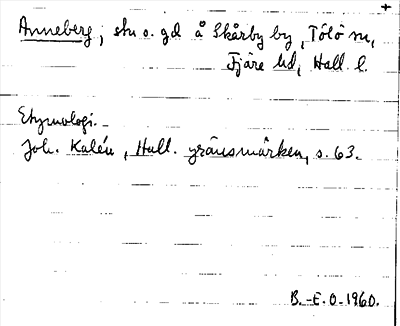 +
Anneberg, stn o. gd å Skårby by, Tölö sn,
Fjäre hd, Hall l.
Etymologi.-
Joh. Kalén, Hall. gränsmärken, s. 63.
B.-E. O. 1960.